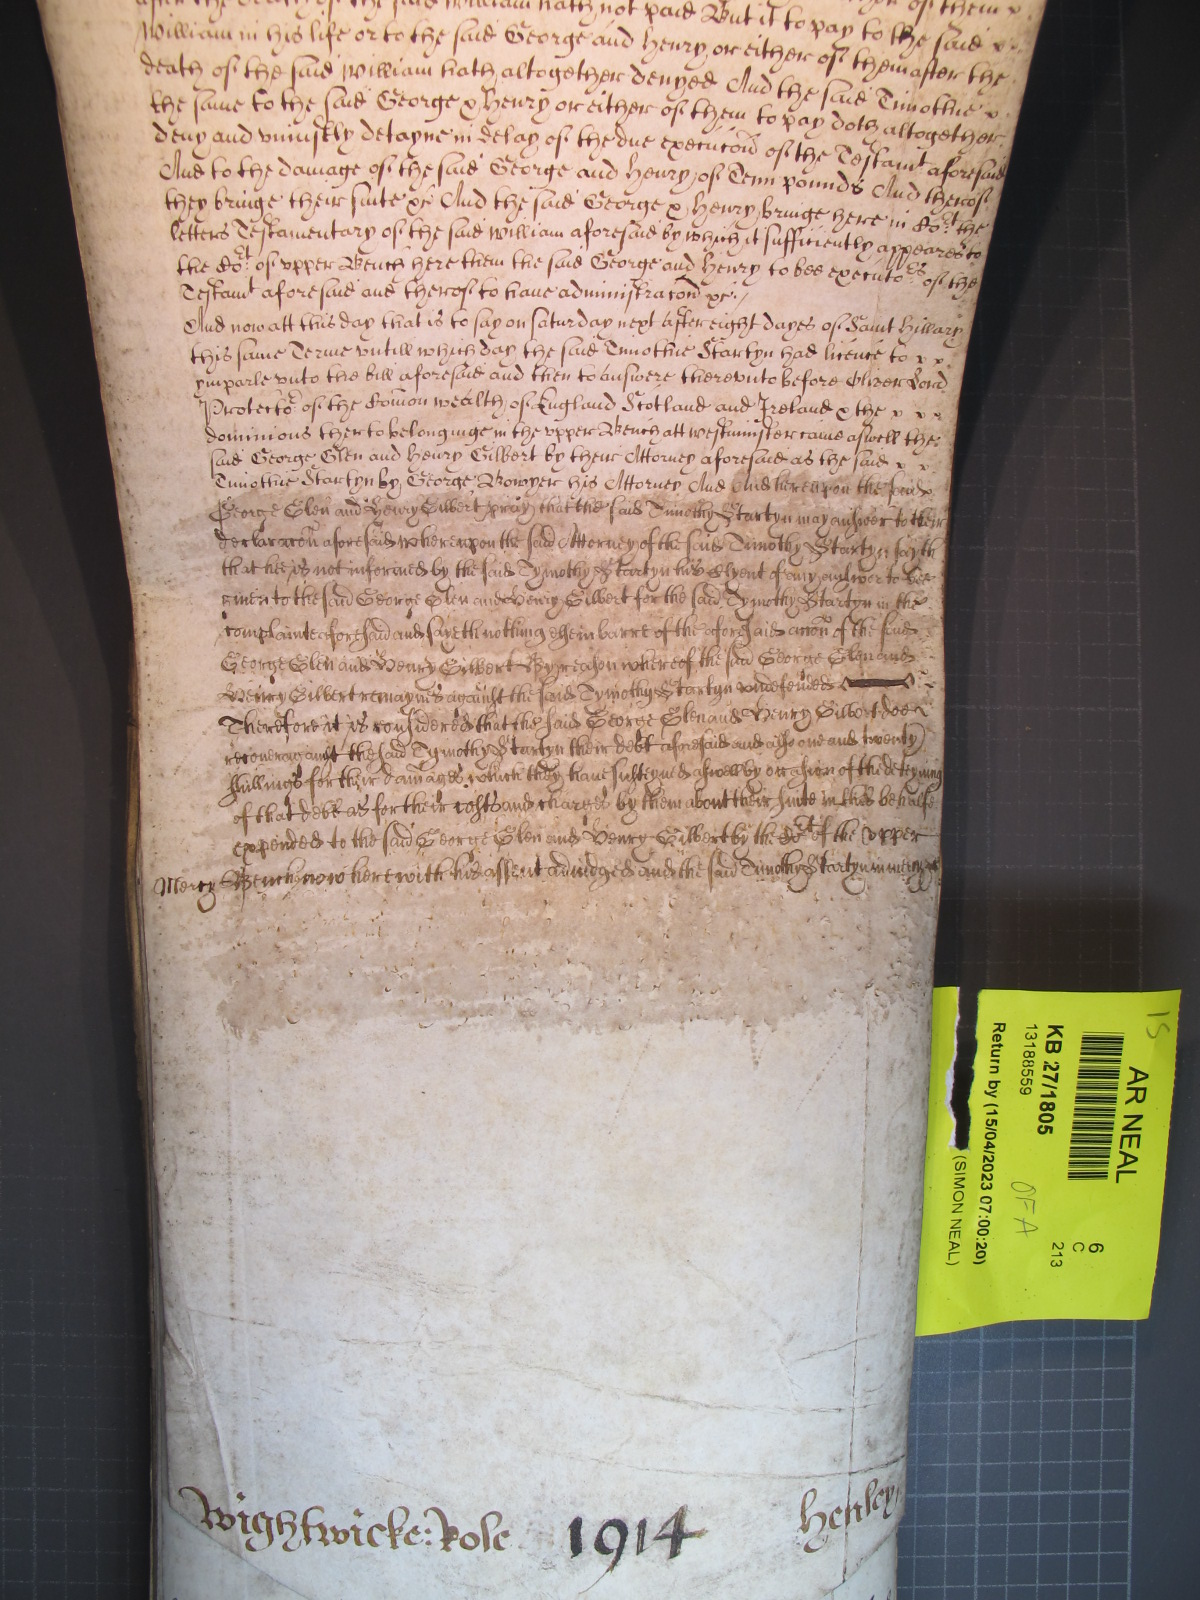 after the death of the said William hath not paid But it to pay to the said
William in his life or to the said George and Henry or either of them after the
death of the said William hath altogether denyed And the said Timothie
the same to the said George & Henry or either of them to pay doth altogether
deny and uniustly detayne in delay of the due execucon of the Testamt aforesaid
And to the damage of the said George and Henry of Tenn pounds And thereof
they bringe their suite &c And the said George & Henry bringe here in Cort the
letters Testamentary of the said William aforesaid by which it sufficiently appeares to
the Cort of upper Bench here them the said George and Henry to bee executors of the
Testamt aforesaid and thereof to haue administracon &c
And now att this day that is to say on Saturday next after eight dayes of Saint Hillary
this same Terme untill which day the said Timothie Startyn had licence to
ymparle unto the bill aforesaid and then to answere thereunto before Oliver Lord
Protector of the Comon wealth of England Scotland and Ireland & the
dominions therto belonginge in the upper Bench att Westminster came aswell the
said George Glen and Henry Gilbert by their Attorney aforesaid as the said
Timothie Startyn by George Bowyer his Attorney And And hereupon the said
George Glen and Henry Gilbert pray that the said Timothy Startyn may answer to their
declaracon aforesaid whereupon the said Attorney of the said Timothy Startyn sayth
that hee is not informed by the said Tymothy Startyn his Clyent of any answer to bee
given to the said George Glen and Henry Gilbert for the said Tymothy Startyn in the
complainte aforesaid and sayeth nothing else in barre of the aforesaid accon of the said
George Glen and Henry Gilbert By reason whereof the said George Glen and
Henry Gilbert remaynes against the said Tymothy Startyn undefended
Therefore it is considered that the said George Glen and Henry Gilbert doe
recover against the said Tymothy Startyn their debt aforesaid and also one and twenty
shillings for their damages which they haue susteyned aswell by occasion of the deteyning
of that debt as for their costs and charges by them about their suite in this behalfe
expended to the said George Glen and Henry Gilbert by the Cort of the upper
Mercy Bench now here with his assent adiudged and the said Timothy Startyn in mercy &c
Wightwicke: Role 1914 Henley
15
AR NEAL
6
C
213
KB 27/1805
13188559
OFA
Return by (15/04/2023 07:00:20)
(SIMON NEAL)